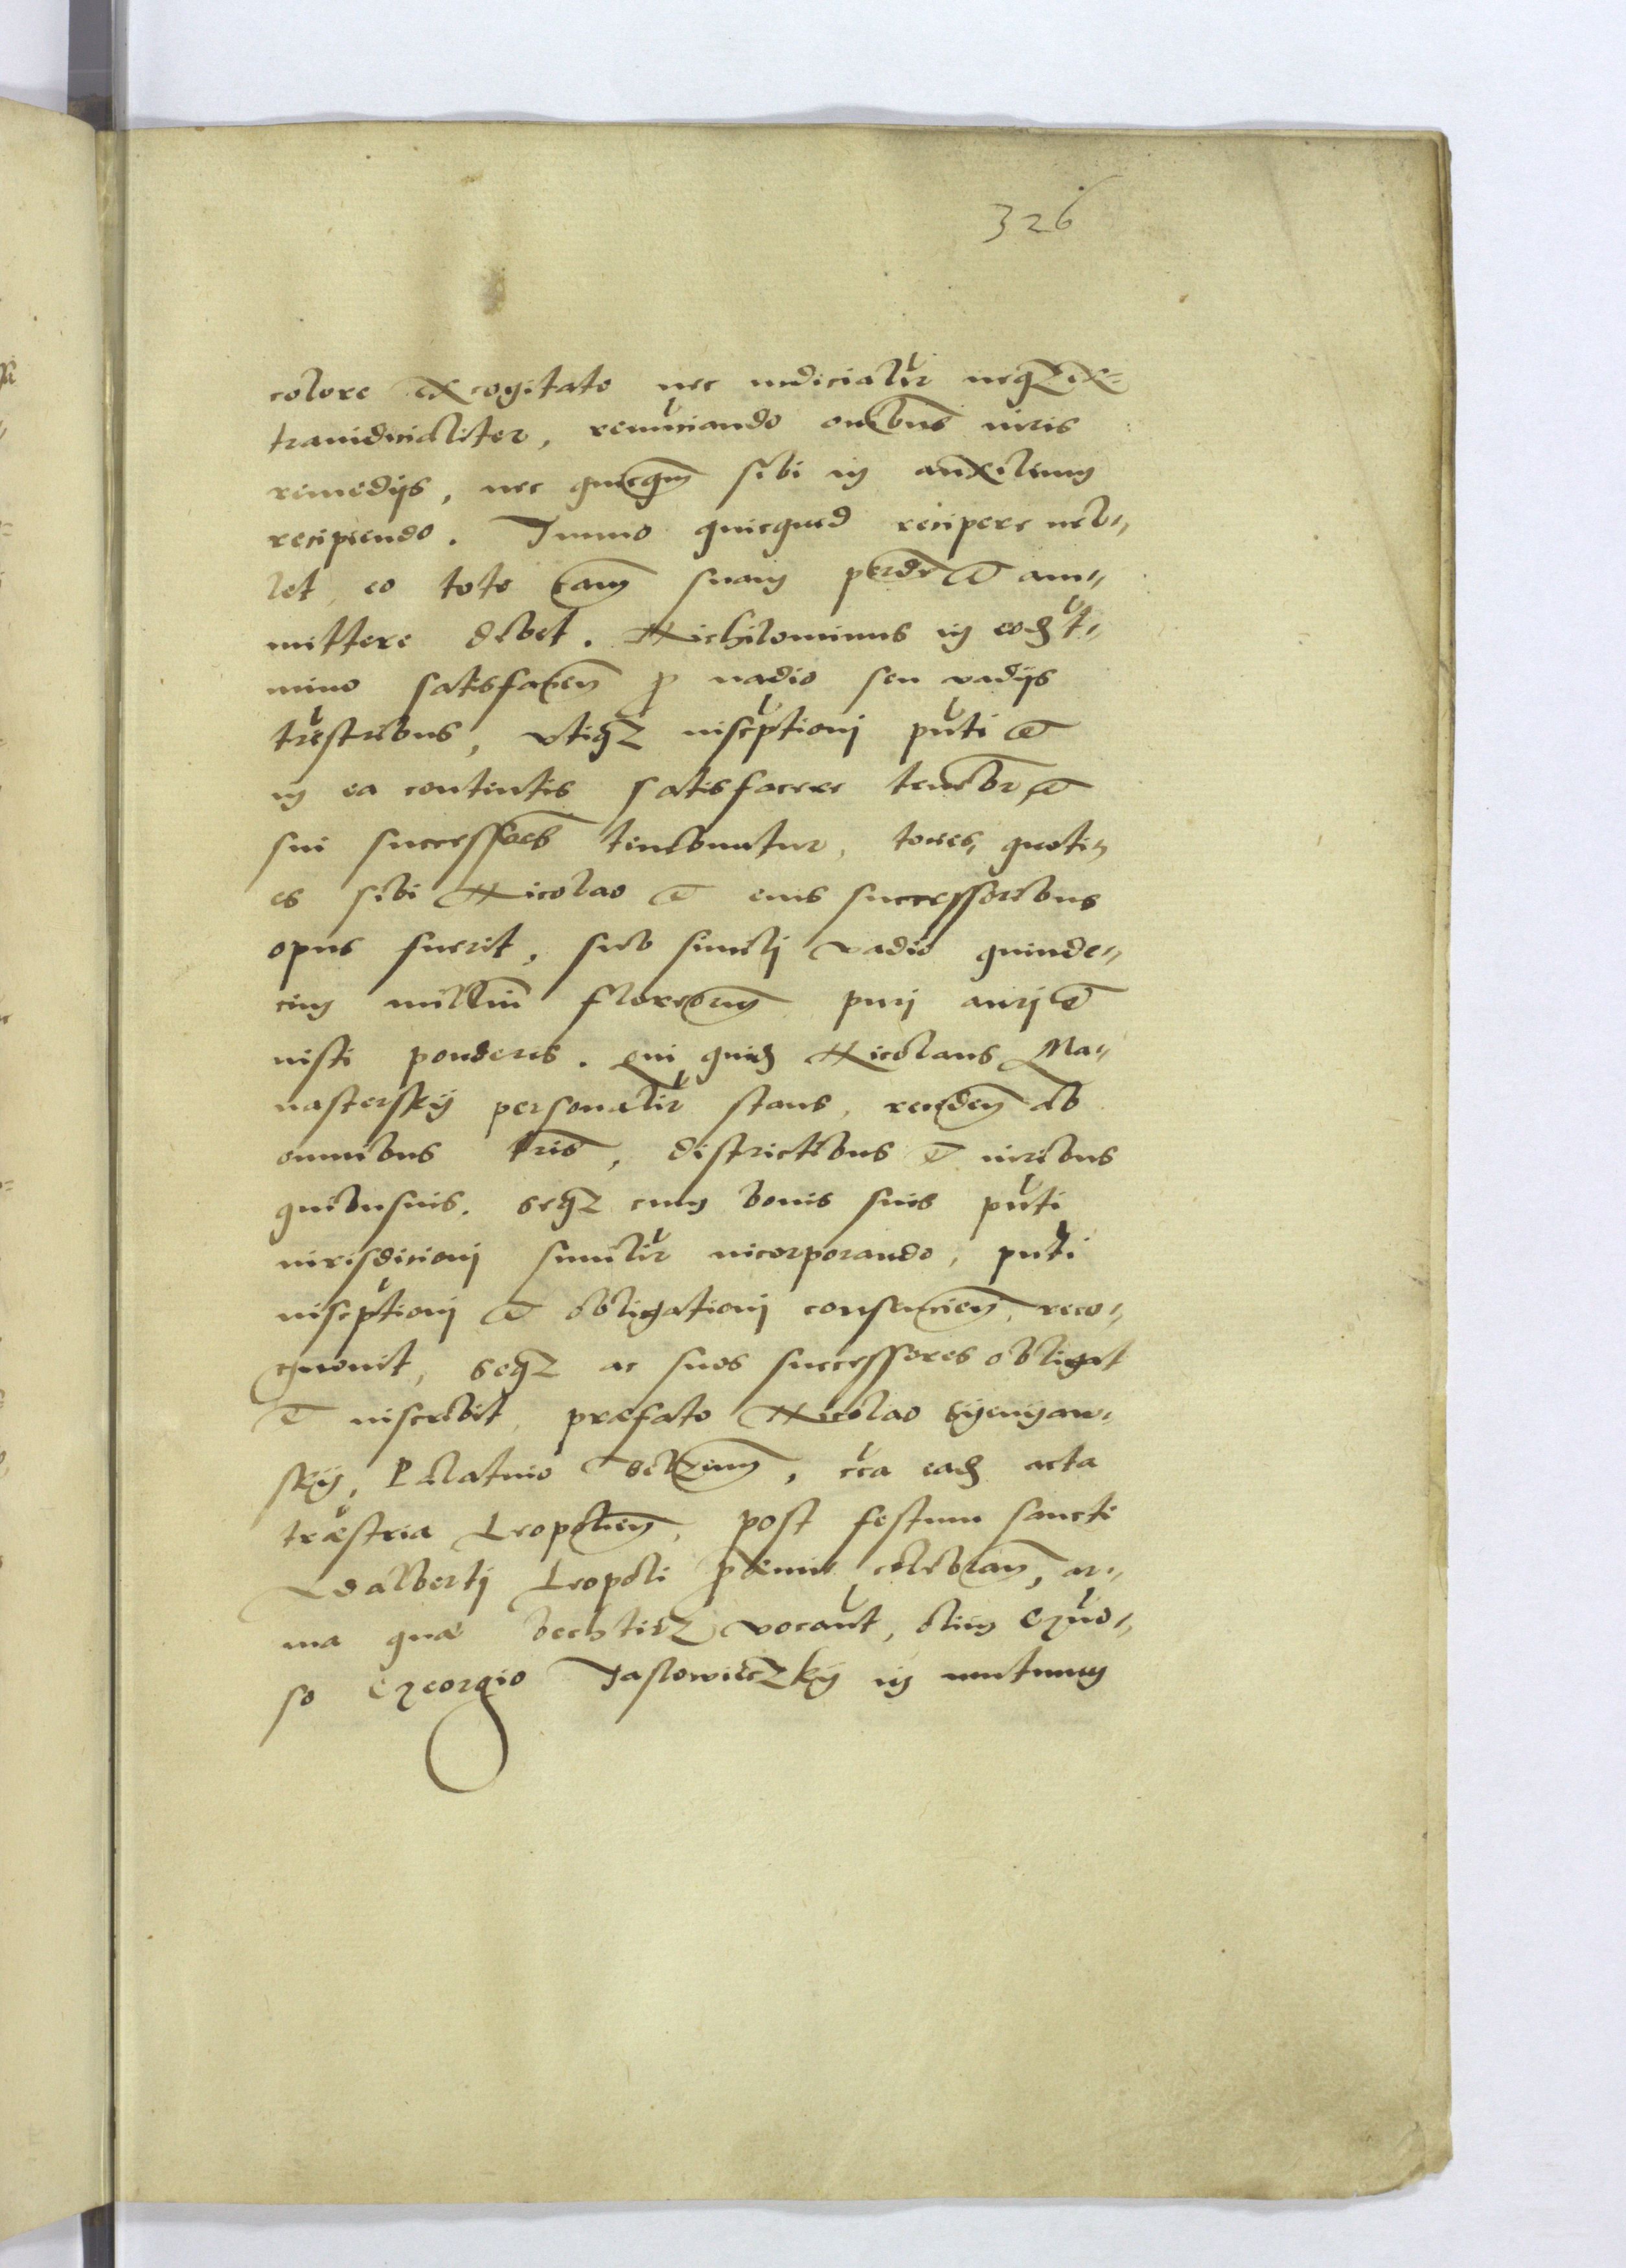 326
colore excogitato nec iudicialr neqz ex=
traiudicialiter, renuciando oibus iuris
remedijs, nec quicqm sibi in auxilium
recipiendo. Immo quicquid recipere vel„
let, eo toto cam suam perdere et am„
mittere debet. Nichilominus in eod t„
mino satisfacien p vadio seu vadijs
trestribus, vtiqz inscptioni pnti et
in ea contentis satisfacere tenebr et
sui successores tenebuntur, toties, quoti„
es sibi Nicolao et eius successoribus
opus fuerit, sub simili vadio quinde„
cim millium florenorum puri auri et
iusti ponderis. Qui quid Nicolaus Ma„
nastersky personalr stans, receden ab
omnibus tris, districtibus et iuribus
quibusuis, seqz cum bonis suis pnti
iurisdicioni similr incorporando, pnti
inscptioni et obligationi consencien, reco„
gnouit, seqz ac suos successores obligat
et inscribit, praefato Nicolao Syenyaw„
sky, Palatino Belzen, cca ead acta
traestria Leopolien, post festum sancti
Adalberti Leopoli pxime celebran, ar„
ma quae bechtierz vocant, olim Gnro„
so Georgio Jaslowieczky in mutuum